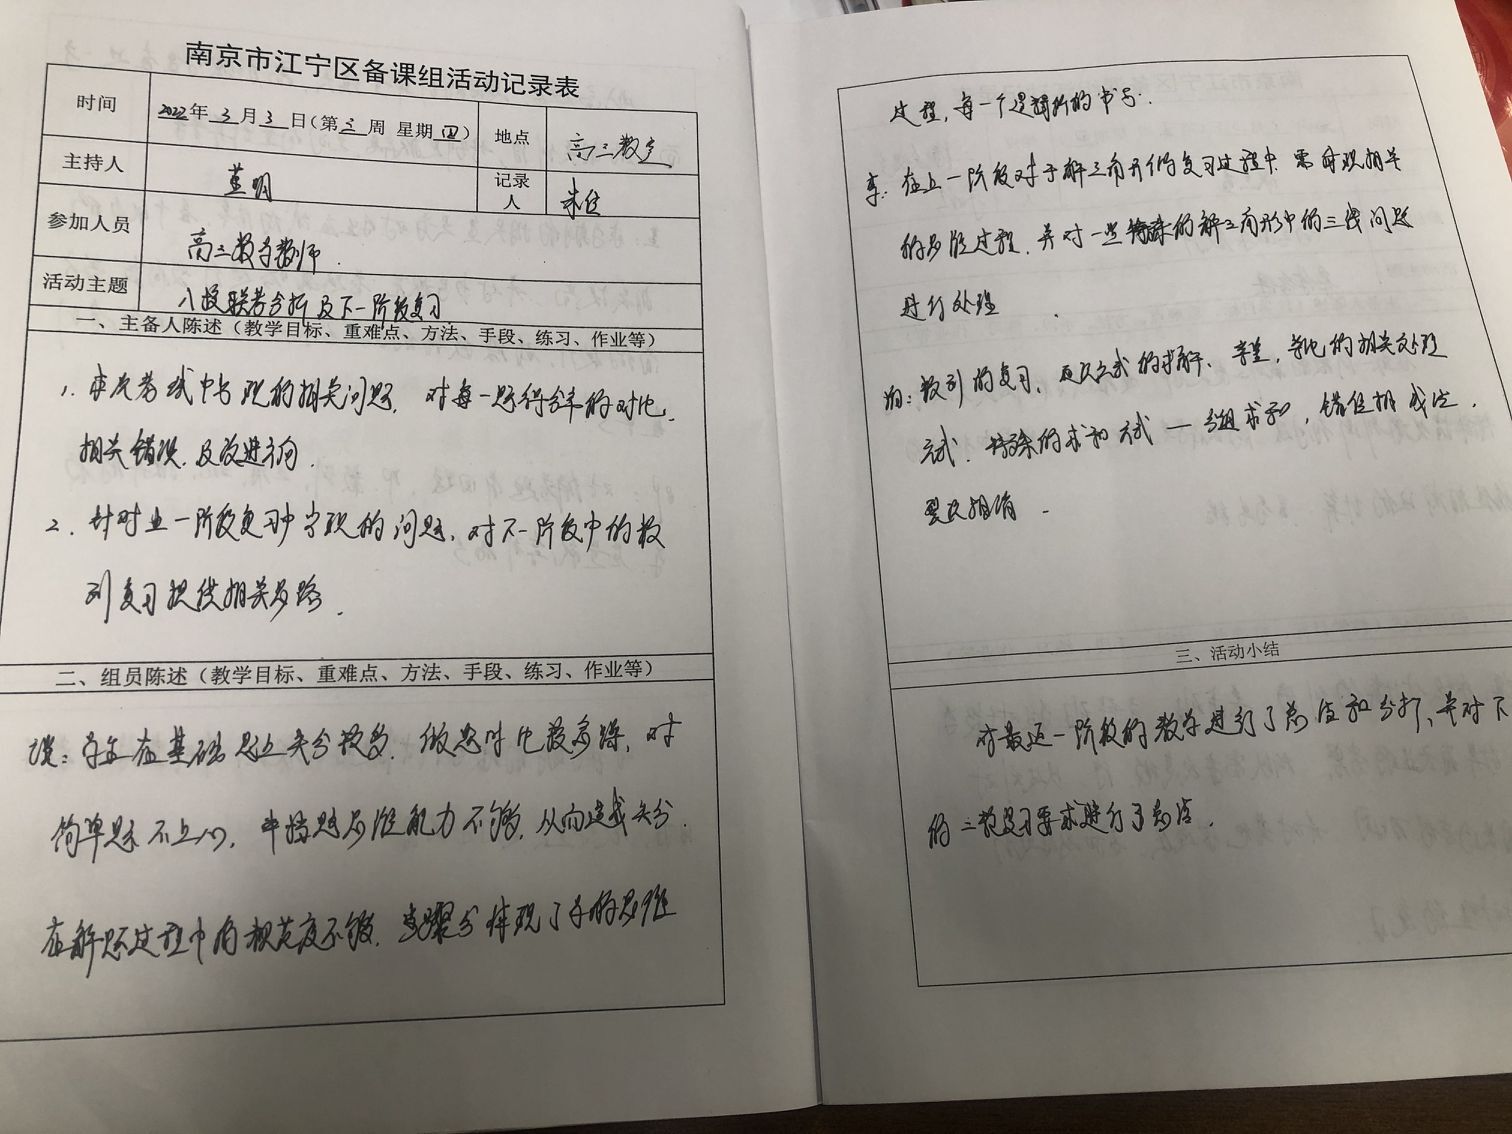 南京市江宁区备课组活动记录表
时间 2022年 3 月 3 日(第 三 周 星期 四) 地点 高三数学
主持人 董明 记录人 朱佳
参加人员 高三数学教师.
活动主题 八校联考分析及下一阶段复习
一、主备人陈述（教学目标、重难点、方法、手段、练习、作业等）
1. 本次考试中出现的相关问题, 对每一题得分率的对比,
相关错误, 及改进方向.
2. 针对上一阶段复习中出现的问题, 对下一阶段中的数
列复习提供相关思路.
二、组员陈述（教学目标、重难点、方法、手段、练习、作业等）
学生在基础题上失分较多, 做题时比较急躁, 对
简单题不上心, 中档题思维能力不够, 从而造成失分.
在解题过程中的规范度不够, 步骤分体现了学生的思维
过程, 每一个逻辑的书写.
李: 在上一阶段对于解三角形的复习过程中, 需重视相关
的思维过程, 并对一些特殊的解三角形中的三线问题
进行处理.
数列的复习, 通项公式的求解, 等差, 等比的相关处理
方式, 特殊的求和方式 — 分组求和, 错位相减法,
裂项相消.
三、活动小结
对最近一阶段的教学进行了总结和分析, 并对下
的二轮复习要求进行了总结.